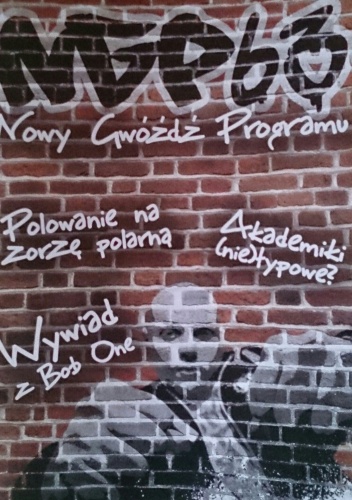 Nowy Gwóźdź Programu
Polowanie na
zorzę polarną
Akademiki
(nie)typowe?
Wywiad
z Bob One